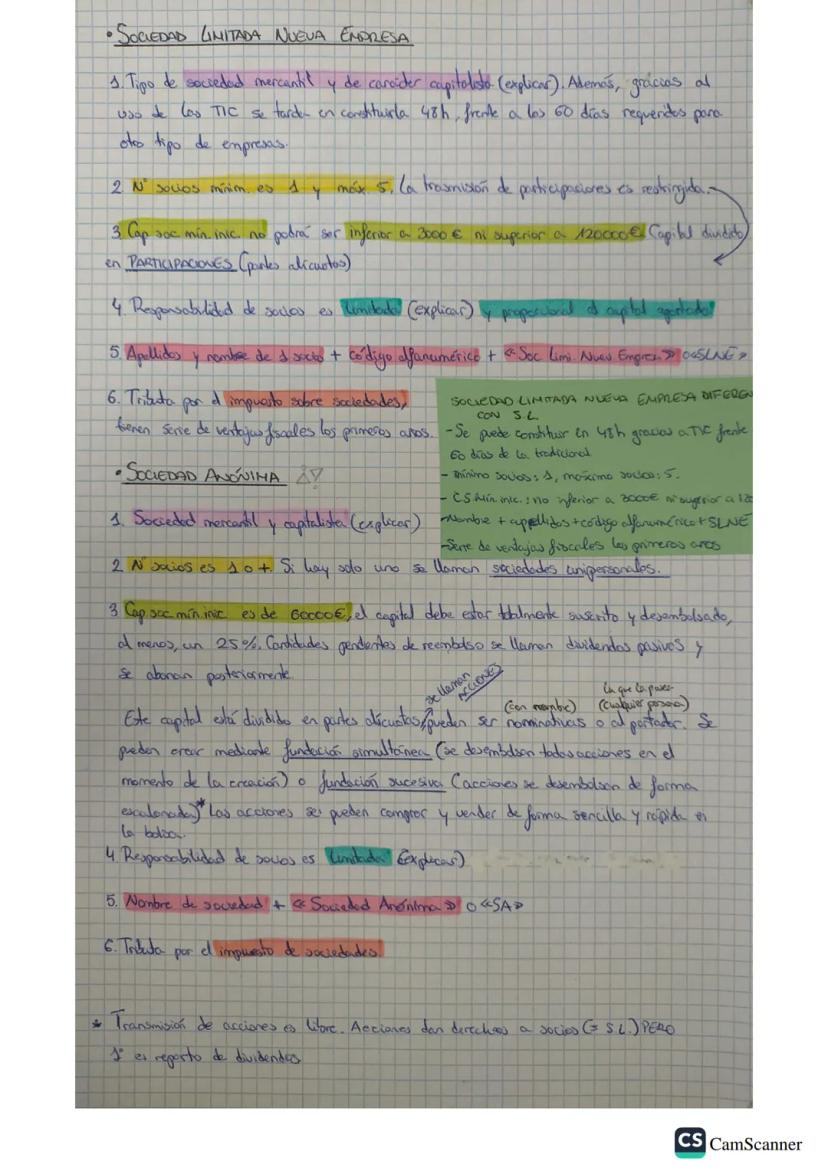 • SOCIEDAD LIMITADA NUEVA EMPRESA
1. Tipo de sociedad mercantil y de carácter capitalista (explicar). Además, gracias al
uso de las TIC se tarda en constituirla 48h, frente a los 60 días requeridos para
otro tipo de empresas.
2. Nº socios mínim. es 1 y máx 5. La trasmisión de participaciones es restringida.
3. Cap soc mín. inic. no podrá ser inferior a 3000 € ni superior a 120000€. Capital dividido
en PARTICIPACIONES (partes alícuotas)
4. Responsabilidad de socios es limitada (explicar) y proporcional al capital aportado
5. Apellidos y nombre de 1 socio + código alfanumérico + «Soc Limi. Nuev Empres.» o «SLNE»
6. Tributa por el impuesto sobre sociedades,
tienen serie de ventajas fiscales los primeros años.
SOCIEDAD LIMITADA NUEVA EMPRESA DIFEREN
CON SL
- Se puede constituir en 48h gracias a TIC frente
60 días de la tradicional
- mínimo socios: 1, máximo socios: 5.
- CS Mín. inic.: no inferior a 3000€ ni superior a 120
- Nombre + apellidos + código alfanumérico + SLNE
- Serie de ventajas fiscales los primeros años
• SOCIEDAD ANÓNIMA
1. Sociedad mercantil y capitalista (explicar)
2. Nº socios es 1 o +. Si hay solo uno se llaman sociedades unipersonales.
3. Cap. soc. mín. inic. es de 60000€, el capital debe estar totalmente suscrito y desembolsado,
al menos, un 25%. Cantidades pendientes de reembolso se llaman dividendos pasivos y
se abonan posteriormente.
se llaman ACCIONES
(con nombre)
la que la posee
(cualquier persona)
Este capital está dividido en partes alícuotas, pueden ser nominativas o al portador. Se
pueden crear mediante fundación simultánea (se desembolsan todas acciones en el
momento de la creación) o fundación sucesiva (acciones se desembolsan de forma
escalonada)* Las acciones se pueden comprar y vender de forma sencilla y rápida en
la bolsa.
4. Responsabilidad de socios es limitada (explicar)
5. Nombre de sociedad + «Sociedad Anónima» o «SA»
6. Tributa por el impuesto de sociedades.
* Transmisión de acciones es libre. Acciones dan derechos a socios (= S.L.) PERO
1º es reparto de dividendos
CS CamScanner